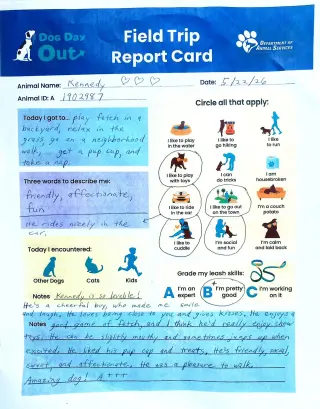 Dog Day Out
Field Trip
Report Card
DEPARTMENT OF
ANIMAL SERVICES
Animal Name: Kennedy ♡ ♡ ♡ Date: 5/22/26
Animal ID: A 1902987
Today I got to... play fetch in a
backyard, relax in the
grass, go on a neighborhood
walk, get a pup cup, and
take a nap.
Three words to describe me:
friendly, affectionate,
fun
He rides nicely in the
car.
Today I encountered:
Other Dogs
Cats
Kids
Circle all that apply:
I like to play in the water
I like to go hiking
I like to run
I like to play with toys
I can do tricks
I am housebroken
I like to ride in the car
I like to go out on the town
I'm a couch potato
I like to cuddle
I'm social and fun
I'm calm and laid back
Grade my leash skills:
A I'm an expert
B+ I'm pretty good
C I'm working on it
Notes Kennedy is so lovable!
He's a cheerful boy, who made me smile
and laugh. He loves being close to you and gives kisses. He enjoys a
Notes good game of fetch, and I think he'd really enjoy chew
toys. He can be slightly mouthy and sometimes jumps up when
excited. He liked his pup cup and treats. He's friendly, social,
sweet, and affectionate. He was a pleasure to walk.
Amazing dog! A+++